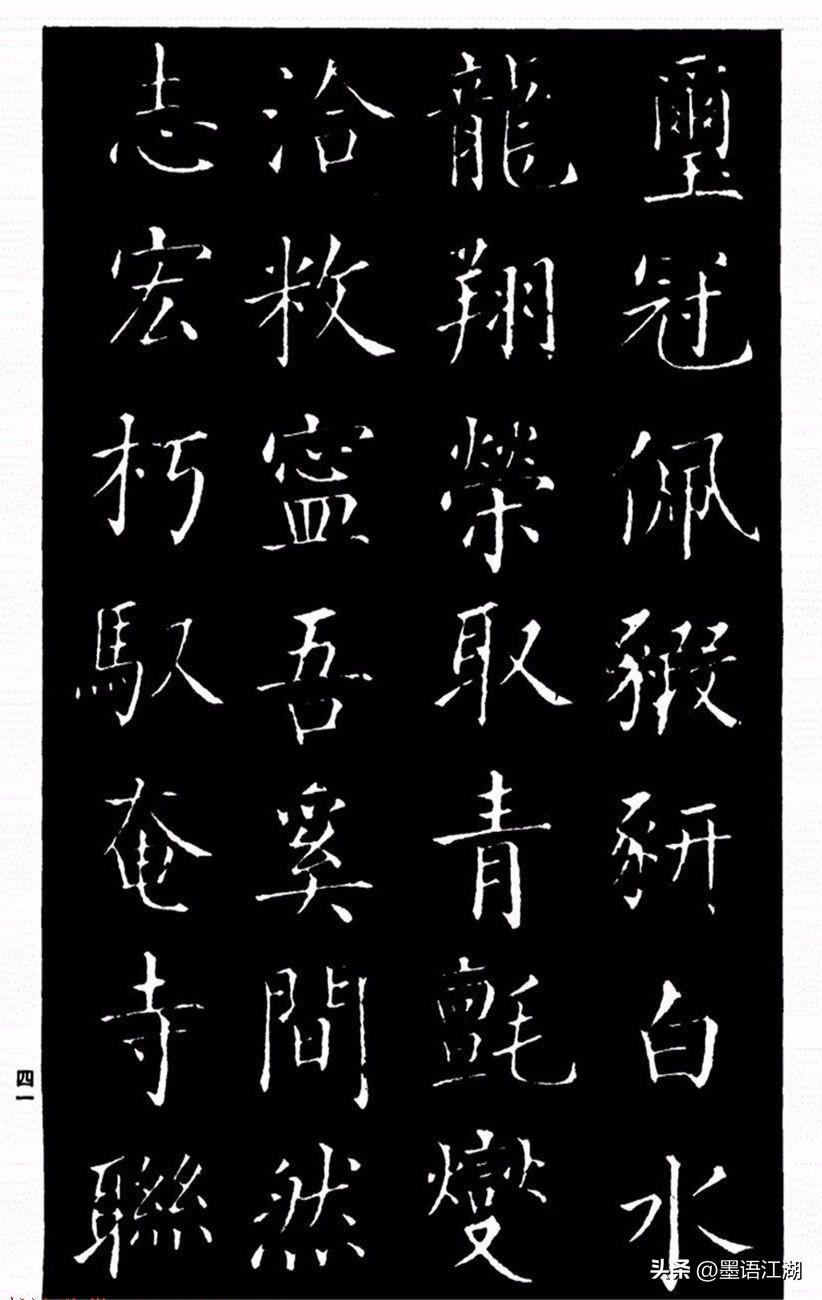 璽冠佩豭豜白水
龍翔榮取青氈燮
洽敉寍吾奚間然
志宏朽馭奄寺聯
四一
头条 @墨语江湖